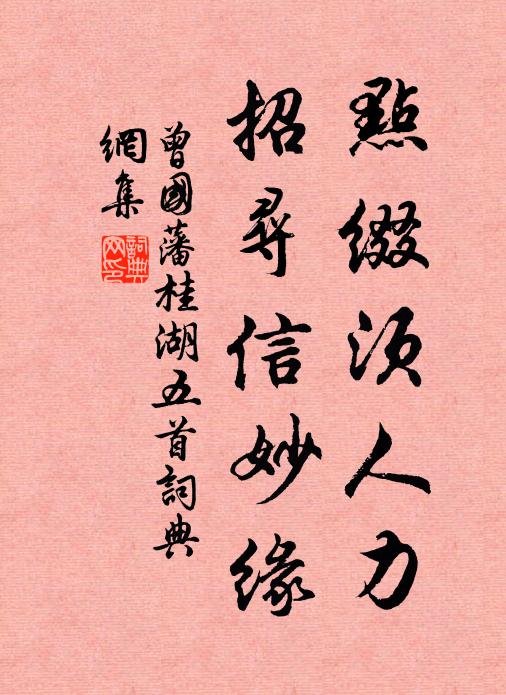 點綴須人力
招尋信妙緣
曾國藩桂湖五首詞典
網集
詞典
网印